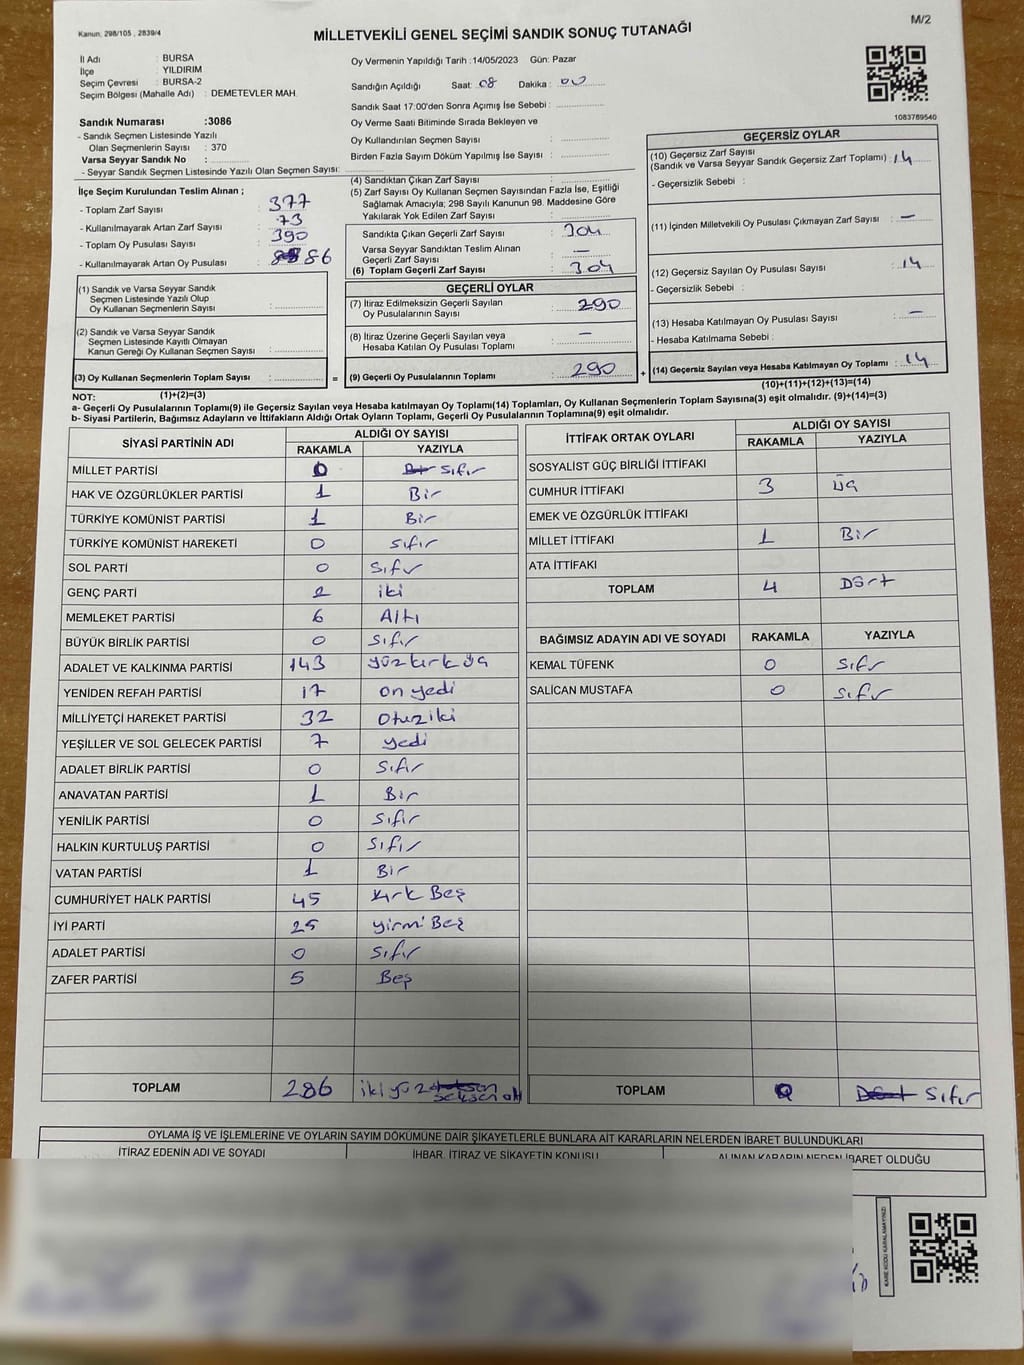 Kanun, 298/105 , 2839/4
MİLLETVEKİLİ GENEL SEÇİMİ SANDIK SONUÇ TUTANAĞI
M/2
İl Adı : BURSA
İlçe : YILDIRIM
Seçim Çevresi : BURSA-2
Seçim Bölgesi (Mahalle Adı) : DEMETEVLER MAH.
Sandık Numarası :3086
- Sandık Seçmen Listesinde Yazılı
Olan Seçmenlerin Sayısı : 370
Varsa Seyyar Sandık No :
- Seyyar Sandık Seçmen Listesinde Yazılı Olan Seçmen Sayısı:
Oy Vermenin Yapıldığı Tarih :14/05/2023 Gün: Pazar
Sandığın Açıldığı Saat: 08 Dakika : 00
Sandık Saat 17:00'den Sonra Açımış İse Sebebi :
Oy Verme Saati Bitiminde Sırada Bekleyen ve
Oy Kullandırılan Seçmen Sayısı :
Birden Fazla Sayım Döküm Yapılmış İse Sayısı :
1083789540
İlçe Seçim Kurulundan Teslim Alınan ;
- Toplam Zarf Sayısı : 377
- Kullanılmayarak Artan Zarf Sayısı : 73
- Toplam Oy Pusulası Sayısı : 390
- Kullanılmayarak Artan Oy Pusulası : 86
(1) Sandık ve Varsa Seyyar Sandık
Seçmen Listesinde Yazılı Olup
Oy Kullanan Seçmenlerin Sayısı :
(2) Sandık ve Varsa Seyyar Sandık
Seçmen Listesinde Kayıtlı Olmayan
Kanun Gereği Oy Kullanan Seçmen Sayısı :
(3) Oy Kullanan Seçmenlerin Toplam Sayısı :
(1)+(2)=(3)
(4) Sandıktan Çıkan Zarf Sayısı :
(5) Zarf Sayısı Oy Kullanan Seçmen Sayısından Fazla İse, Eşitliği
Sağlamak Amacıyla; 298 Sayılı Kanunun 98. Maddesine Göre
Yakılarak Yok Edilen Zarf Sayısı :
Sandıkta Çıkan Geçerli Zarf Sayısı : 304
Varsa Seyyar Sandıktan Teslim Alınan
Geçerli Zarf Sayısı : —
(6) Toplam Geçerli Zarf Sayısı : 304
GEÇERLİ OYLAR
(7) İtiraz Edilmeksizin Geçerli Sayılan
Oy Pusulalarının Sayısı : 290
(8) İtiraz Üzerine Geçerli Sayılan veya
Hesaba Katılan Oy Pusulası Toplamı : —
= (9) Geçerli Oy Pusulalarının Toplamı : 290
GEÇERSİZ OYLAR
(10) Geçersiz Zarf Sayısı
(Sandık ve Varsa Seyyar Sandık Geçersiz Zarf Toplamı) : 14
- Geçersizlik Sebebi :
(11) İçinden Milletvekili Oy Pusulası Çıkmayan Zarf Sayısı : —
(12) Geçersiz Sayılan Oy Pusulası Sayısı : 14
- Geçersizlik Sebebi :
(13) Hesaba Katılmayan Oy Pusulası Sayısı : —
- Hesaba Katılmama Sebebi :
+ (14) Geçersiz Sayılan veya Hesaba Katılmayan Oy Toplamı : 14
(10)+(11)+(12)+(13)=(14)
NOT:
a- Geçerli Oy Pusulalarının Toplamı(9) ile Geçersiz Sayılan veya Hesaba katılmayan Oy Toplamı(14) Toplamları, Oy Kullanan Seçmenlerin Toplam Sayısına(3) eşit olmalıdır. (9)+(14)=(3)
b- Siyasi Partilerin, Bağımsız Adayların ve İttifakların Aldığı Ortak Oyların Toplamı, Geçerli Oy Pusulalarının Toplamına(9) eşit olmalıdır.
SİYASİ PARTİNİN ADI ALDIĞI OY SAYISI
RAKAMLA YAZIYLA
MİLLET PARTİSİ 0 Sıfır
HAK VE ÖZGÜRLÜKLER PARTİSİ 1 Bir
TÜRKİYE KOMÜNİST PARTİSİ 1 Bir
TÜRKİYE KOMÜNİST HAREKETİ 0 Sıfır
SOL PARTİ 0 Sıfır
GENÇ PARTİ 2 iki
MEMLEKET PARTİSİ 6 Altı
BÜYÜK BİRLİK PARTİSİ 0 Sıfır
ADALET VE KALKINMA PARTİSİ 143 yüzkırk üç
YENİDEN REFAH PARTİSİ 17 on yedi
MİLLİYETÇİ HAREKET PARTİSİ 32 otuziki
YEŞİLLER VE SOL GELECEK PARTİSİ 7 yedi
ADALET BİRLİK PARTİSİ 0 Sıfır
ANAVATAN PARTİSİ 1 Bir
YENİLİK PARTİSİ 0 Sıfır
HALKIN KURTULUŞ PARTİSİ 0 Sıfır
VATAN PARTİSİ 1 Bir
CUMHURİYET HALK PARTİSİ 45 Kırk Beş
İYİ PARTİ 25 yirmi Beş
ADALET PARTİSİ 0 Sıfır
ZAFER PARTİSİ 5 Beş
TOPLAM 286 iki yüz seksen altı
İTTİFAK ORTAK OYLARI ALDIĞI OY SAYISI
RAKAMLA YAZIYLA
SOSYALİST GÜÇ BİRLİĞİ İTTİFAKI
CUMHUR İTTİFAKI 3 üç
EMEK VE ÖZGÜRLÜK İTTİFAKI
MİLLET İTTİFAKI 1 Bir
ATA İTTİFAKI
TOPLAM 4 Dört
BAĞIMSIZ ADAYIN ADI VE SOYADI RAKAMLA YAZIYLA
KEMAL TÜFENK 0 Sıfır
SALİCAN MUSTAFA 0 Sıfır
TOPLAM 0 Sıfır
OYLAMA İŞ VE İŞLEMLERİNE VE OYLARIN SAYIM DÖKÜMÜNE DAİR ŞİKAYETLERLE BUNLARA AİT KARARLARIN NELERDEN İBARET BULUNDUKLARI
İTİRAZ EDENİN ADI VE SOYADI İHBAR, İTİRAZ VE ŞİKAYETİN KONUSU ALINAN KARARIN NEDEN İBARET OLDUĞU
KARE KODU KARALAMAYINIZ!